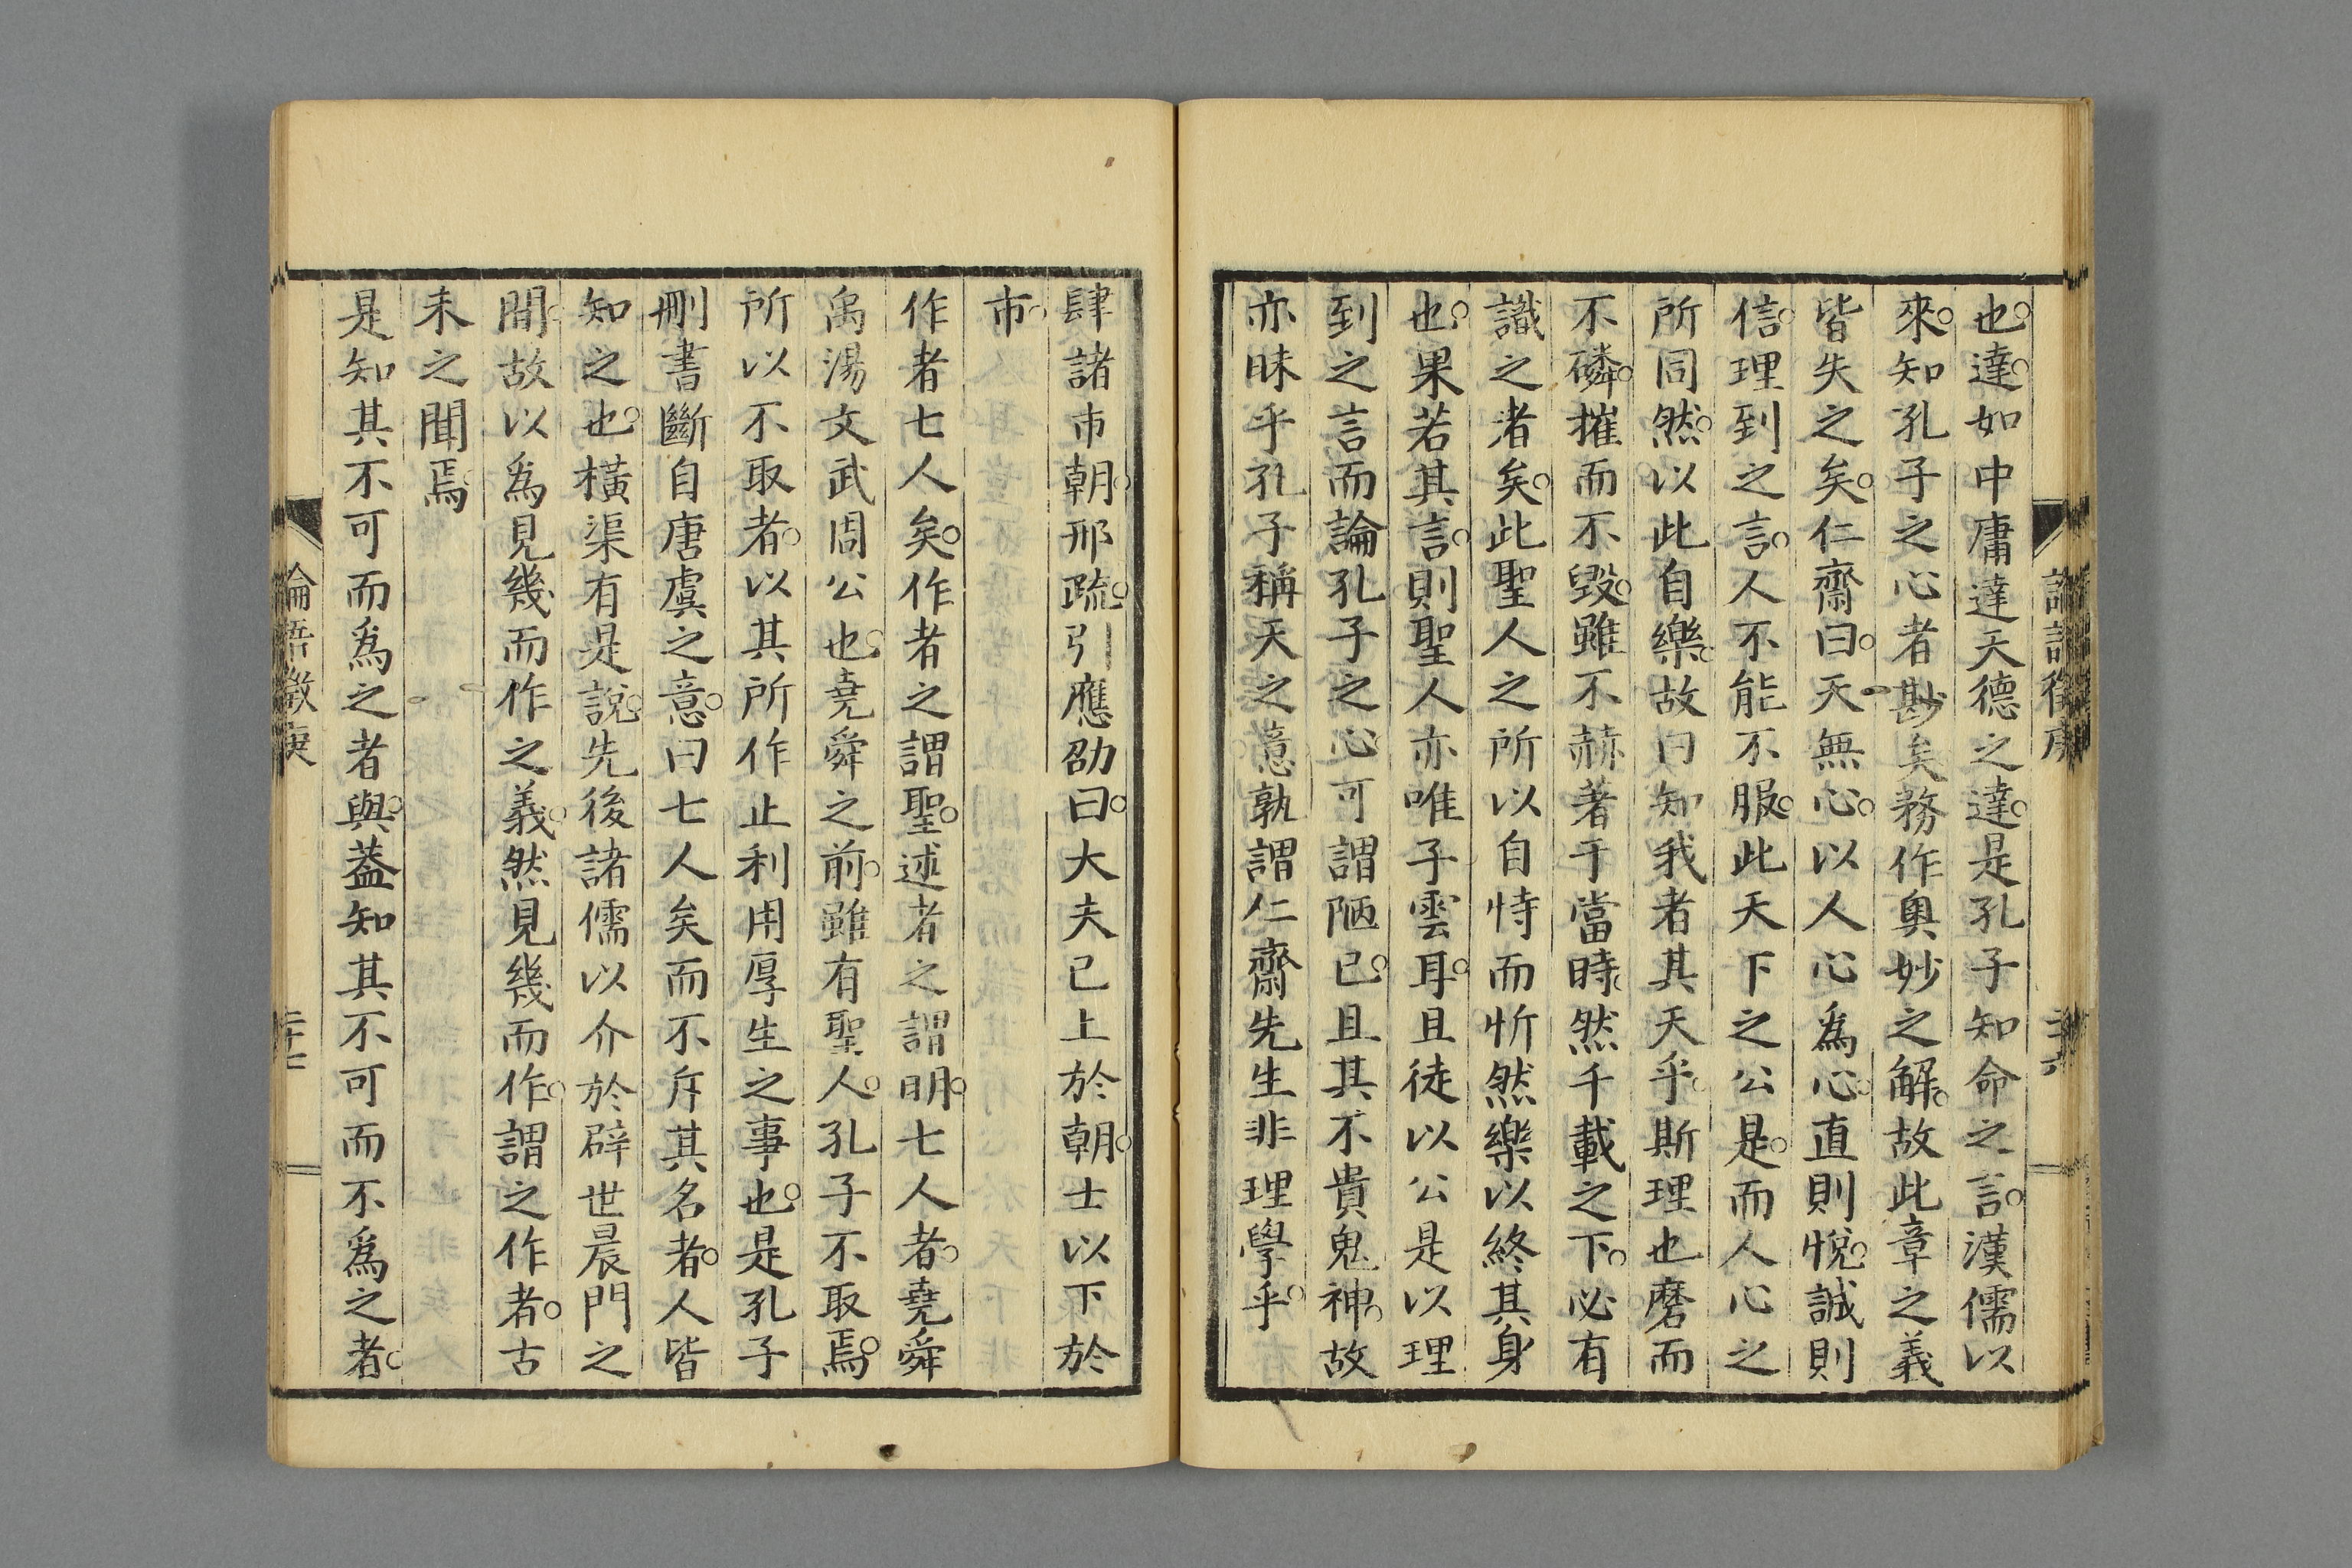 也達如中庸達天德之達是孔子知命之言漢儒以
來知孔子之心者尠矣務作奧妙之解故此章之義
皆失之矣仁齋曰天無心以人心爲心直則悅誠則
信理到之言人不能不服此天下之公是而人心之
所同然以此自樂故曰知我者其天乎斯理也磨而
不磷摧而不毀雖不赫著于當時然千載之下必有
識之者矣此聖人之所以自恃而忻然樂以終其身
也果若其言則聖人亦唯子雲耳且徒以公是以理
到之言而論孔子之心可謂陋已且其不貴鬼神故
亦昧乎孔子稱天之意孰謂仁齋先生非理學乎
肆諸市朝邢疏引應劭曰大夫已上於朝士以下於
市
作者七人矣作者之謂聖述者之謂明七人者堯舜
禹湯文武周公也堯舜之前雖有聖人孔子不取焉
所以不取者以其所作止利用厚生之事也是孔子
刪書斷自唐虞之意曰七人矣而不斥其名者人皆
知之也橫渠有是說先後諸儒以介於辟世晨門之
間故以爲見幾而作之義然見幾而作謂之作者古
未之聞焉
是知其不可而爲之者與蓋知其不可而不爲之者
論語徵庚
二十七